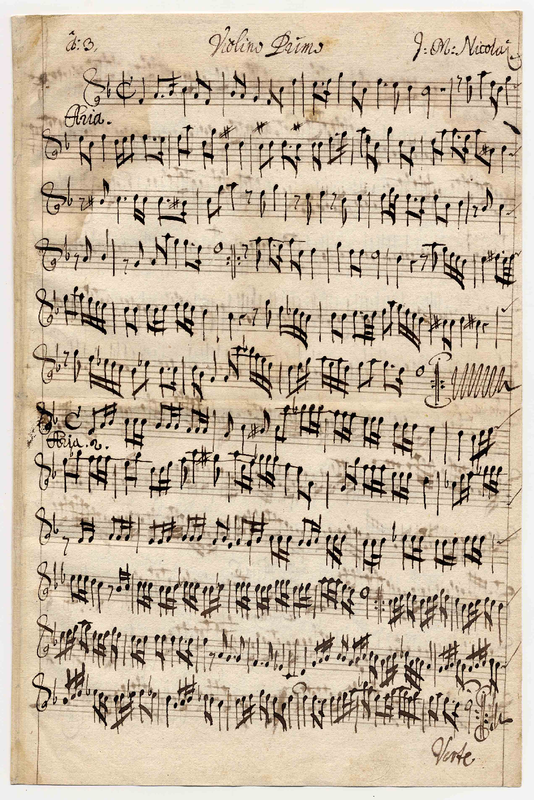 à: 3. Violino Primo J: M: Nicolai
Aria.
Aria. 2.
Verte